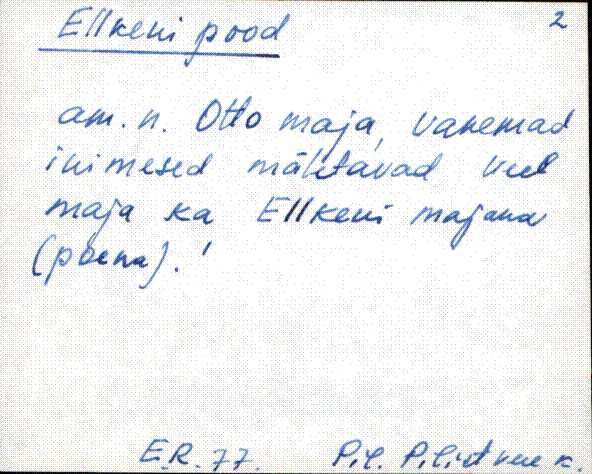 Ellkeni pood 2
am. n. Otto maja, vanemad
inimesed mäletavad veel
maja ka Ellkeni majana
(poena).'
E.R. 77. Pil. Pilistvere k.